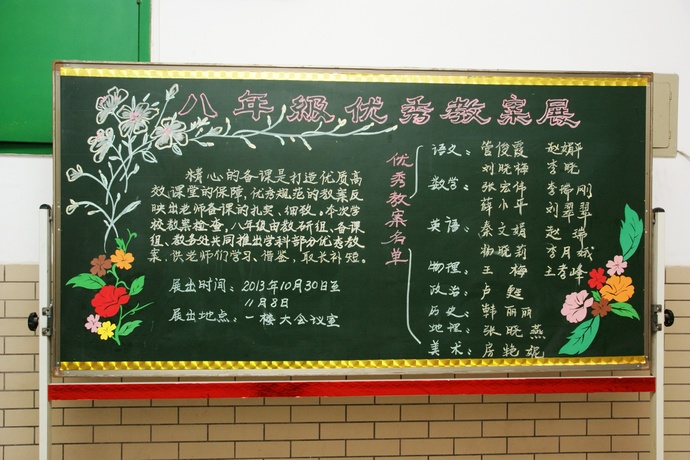 八年级优秀教案展
精心的备课是打造优质高
效课堂的保障，优秀规范的教案反
映出老师备课的扎实、细致。本次学
校教案检查，八年级由教研组、备课
组、教务处共同推出学科部分优秀教
案，供老师们学习、借鉴、取长补短。
展出时间：2013年10月30日至
11月8日
展出地点：一楼大会议室
优秀教案名单
语文：管俊霞 赵娟
刘晓梅 李晓
数学：张宏伟 李缔刚
薛小平 刘翠翠
英语：秦文娟 赵瑞
杨晓莉 李月娥
物理：王梅 王秀峰
政治：卢
历史：韩丽丽
地理：张晓燕
美术：房艳妮